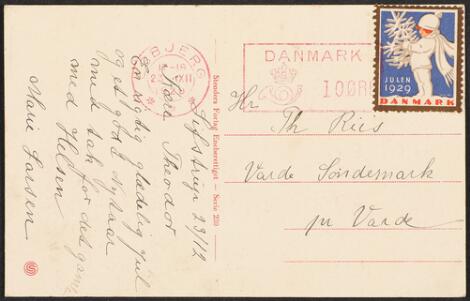 Sejstrup 23/12
Kære Theodor
En rigtig glædelig Jul
og et godt Nytaar
med tak for det gamle
med Hilsen
Marie Larsen
Stenders Forlag Eneberettiget - Serie 220
BJERG
DANMARK
100RE
JULEN
1929
DANMARK
Hr
Th Riis
Varde Søndermark
pr Varde